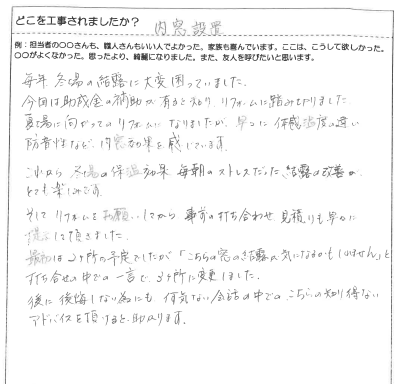 どこを工事されましたか？ 内窓設置
例：担当者の〇〇さんも、職人さんもいい人でよかった。家族も喜んでいます。ここは、こうして欲しかった。
〇〇がよくなかった。思ったより、綺麗になりました。また、友人を呼びたいと思います。
毎年 冬場の結露に大変困っていました。
今回は助成金の補助が有ると知り、リフォームに踏み切りました
夏場に向かってのリフォームになりましたが、早々に体感温度の違い
防音性など、内窓効果を感じています。
これから 冬場の保温効果 毎朝のストレスだった 結露の改善が
とても楽しみです。
そして リフォームをお願いしてから 事前の打ち合わせ 見積りも早々に
提示して頂きました。
最初は 2ヶ所の予定でしたが「こちらの窓の結露が気になるかもしれません」と
打ち合せの中での一言で、3ヶ所に変更しました。
後に後悔しない為にも 何気ない会話の中での こちらの知り得ない
アドバイスを頂けると助かります。